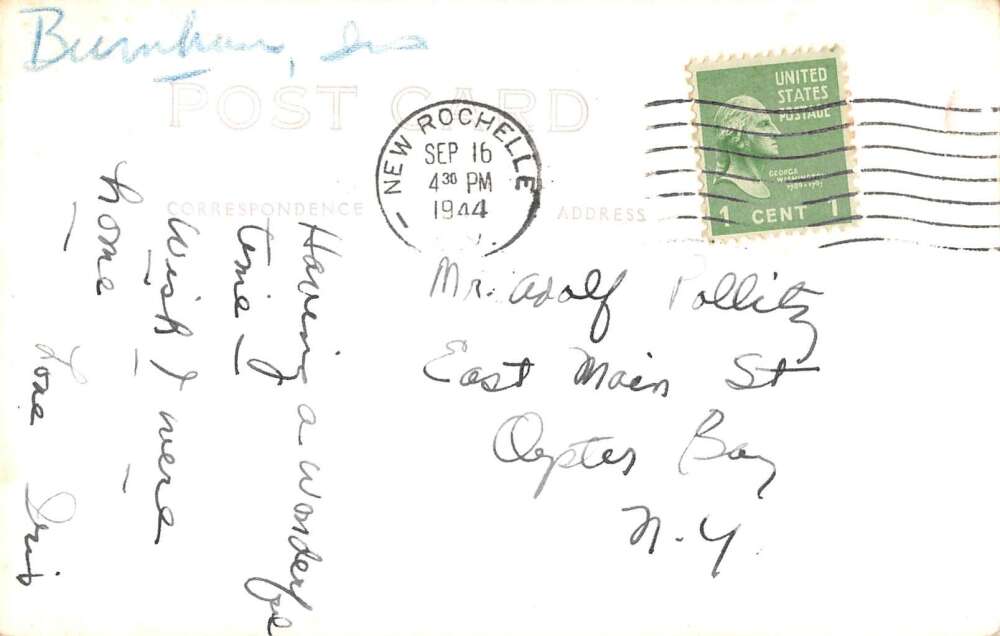 Burnham, Iris
POST CARD
NEW ROCHELLE
SEP 16
4 30 PM
1944
N.Y.
UNITED
STATES
POSTAGE
GEORGE
WASHINGTON
1789-1797
1 CENT 1
CORRESPONDENCE
ADDRESS
Having a wonderful
time I
Wish I were
home
Love Iris
Mr. Adolf Pollitz
East Main St
Oyster Bay
N.Y.